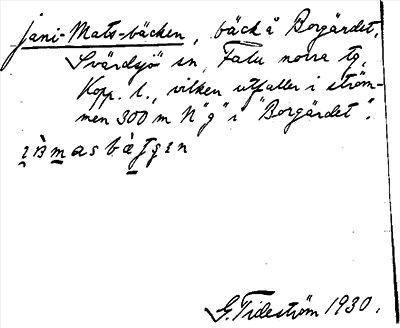 jani-Mats-bäcken, bäck å Borgärdet,
Svärdsjö sn, Falu norra tg,
Kopp. l., vilken utfaller i ström-
men 300 m N "g" i "Borgärdet".
G. Tideström 1930.